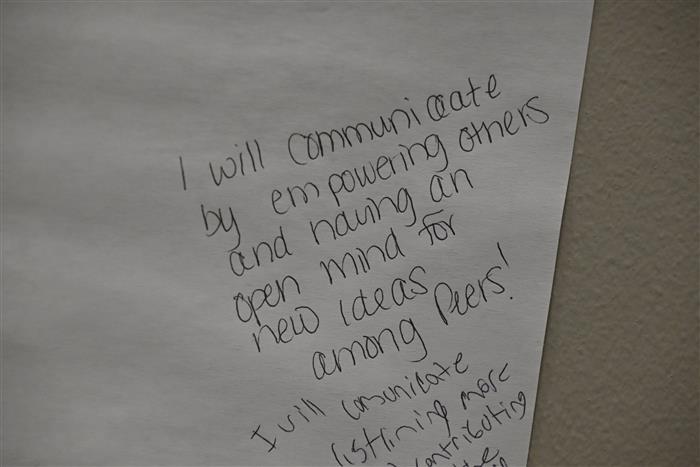 I will communicate
by empowering others
and having an
open mind for
new ideas
among Peers!
I will comunicate
listining more
contributing